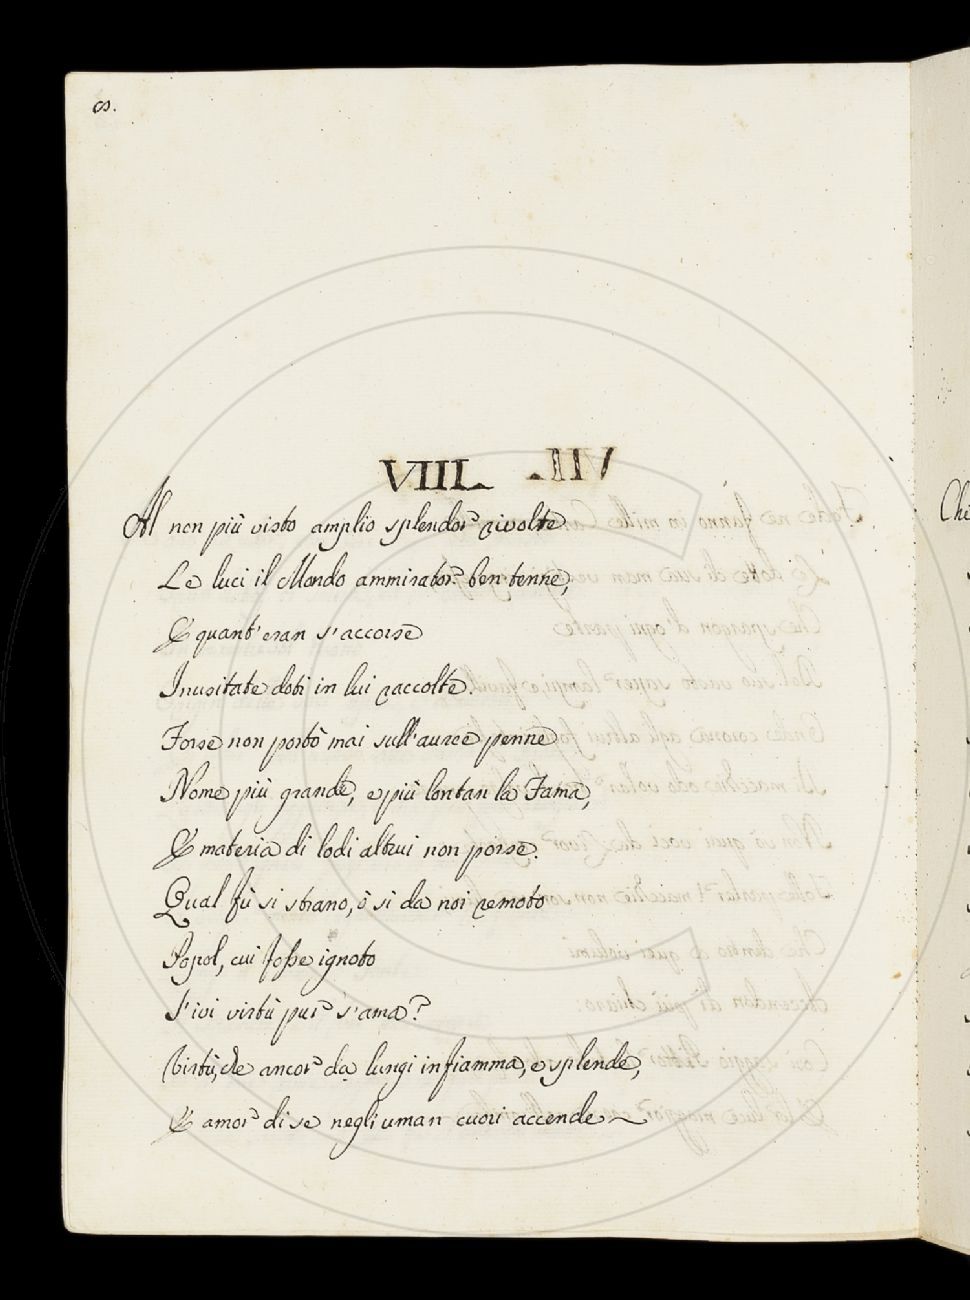 8.
VIII.
Al non più visto amplio splendor rivolte
Le luci il Mondo ammirator ben tenne,
E quant'eran s'accorse
Inusitate doti in lui raccolte.
Forse non portò mai sull'auree penne
Nome più grande, e più lontan la Fama,
E materia di lodi altrui non porse.
Qual fù si strano, ò si da noi remoto
Popol, cui fosse ignoto
S'ivi virtù pur s'ama?
Virtù, che ancor da lungi infiamma, e splende,
E amor di se negli uman cuori accende
Chi